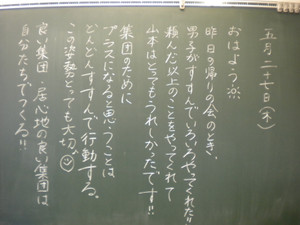 五月二十七日(木)
おはようございます
昨日の帰りの会のとき、
男子がすすんでいろいろやってくれた!!
頼んだ以上のことをやってくれて
山本はとってもうれしかったです!!
集団のために
プラスになると思うことは
どんどんすすんで行動する。
この姿勢とっても大切。
良い集団、居心地の良い集団は
自分たちでつくる!!